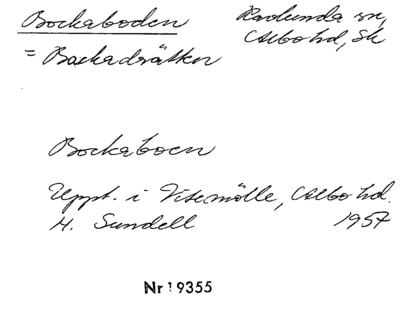 Bockaboden
Ravlunda sn,
Albo hd, Sk
= Bockadrätten
Bockaboen
Uppt. i Vitemölle, Albo hd.
H. Sundell 1957
Nr 19355